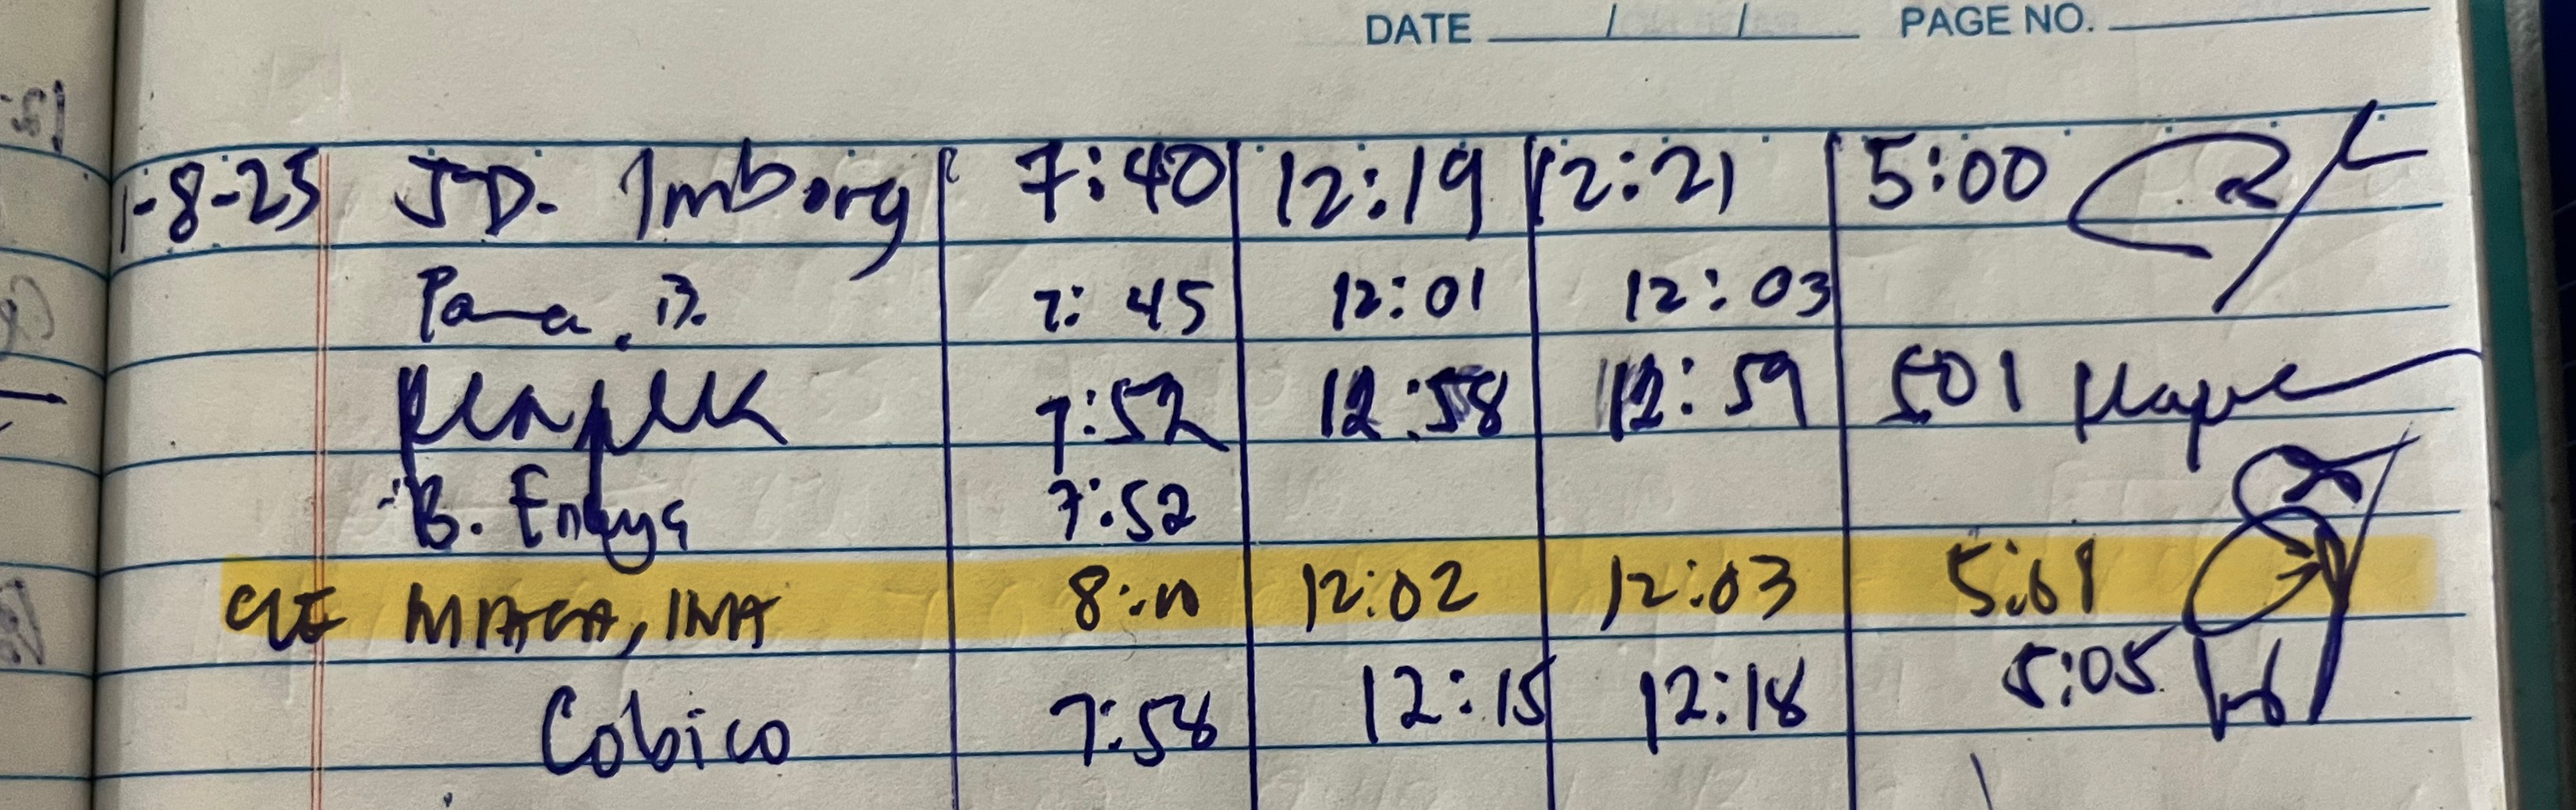 DATE / / PAGE NO.
1-8-25 J.D. Imborg 7:40 12:19 12:21 5:00
7:45 12:01 12:03
7:52 12:58 12:59 501
B. 7:52
8:10 12:02 12:03 5:01
5:05
Cobico 7:58 12:15 12:18